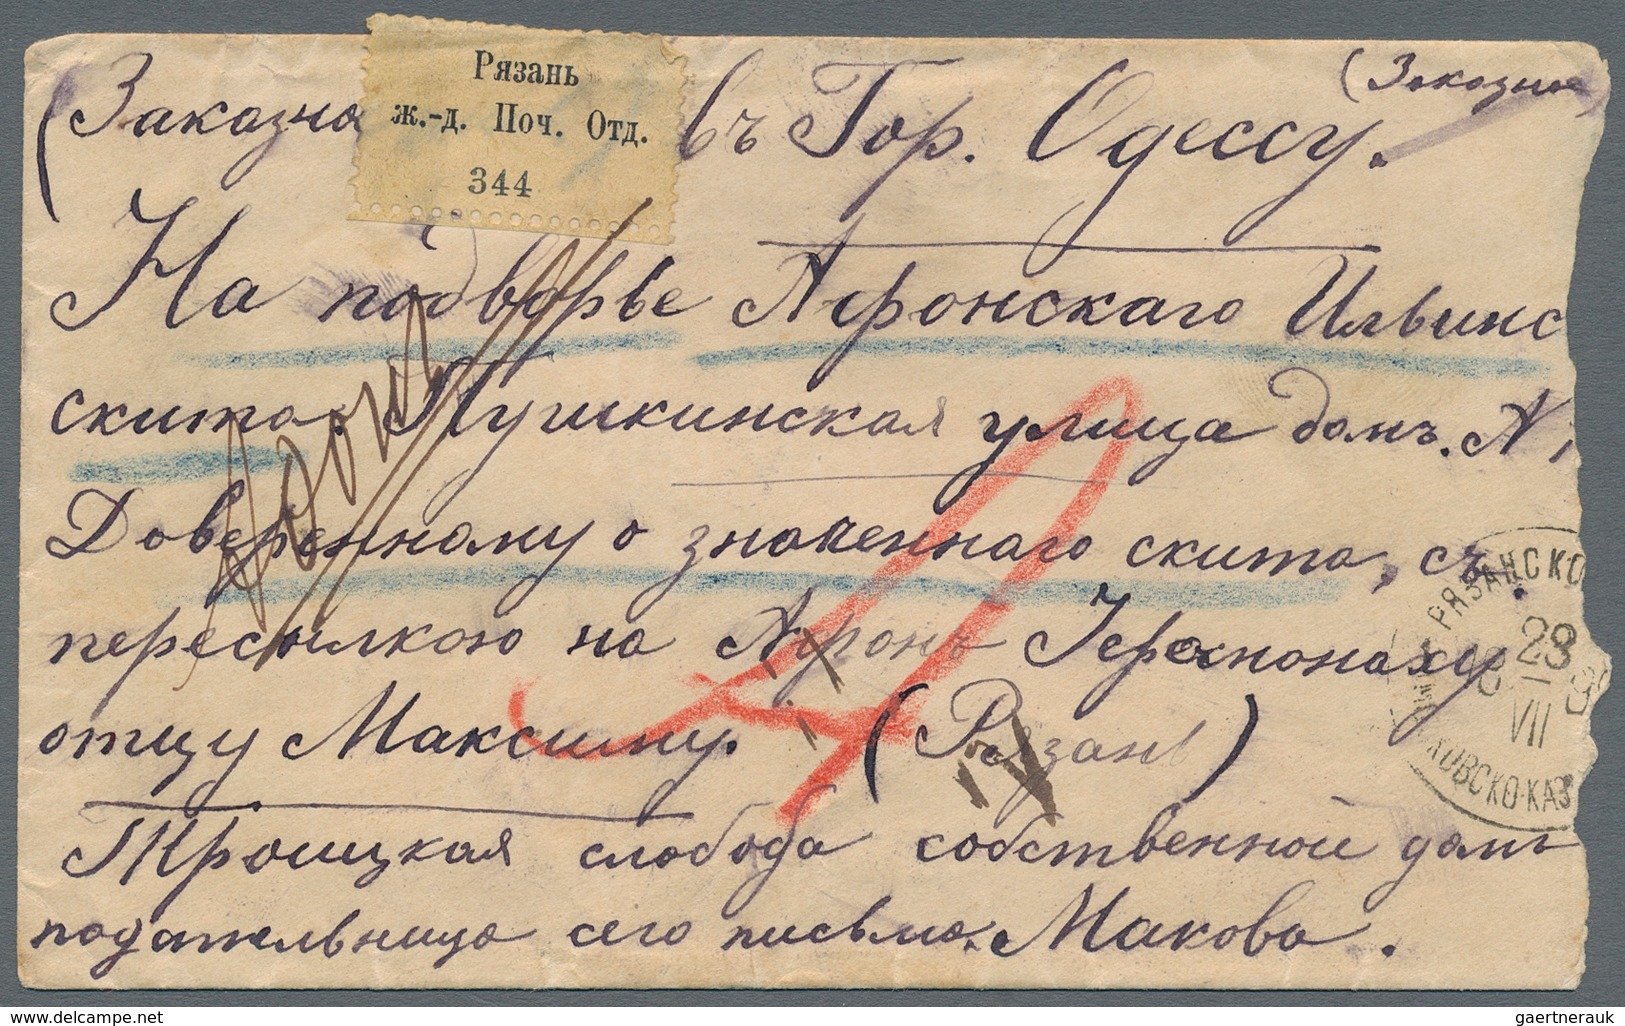 (Заказно
Рязань
ж.-д. Поч. Отд.
344
въ Гор. Одессу.
(Заказное)
На подворье Афонскаго Ильинс
скита. Пушкинская улица домъ. N
Доверенному о значеннаго скита, съ
пересылкою на Афонъ Іеромонаху
отцу Максиму. (Рязань)
Троицкая слобода собственной домъ
подательница сего письма. Макова.
РЯЗАНСКО
28
VII
КОВСКО-КАЗ
www.delcampe.net
gaertnerauk